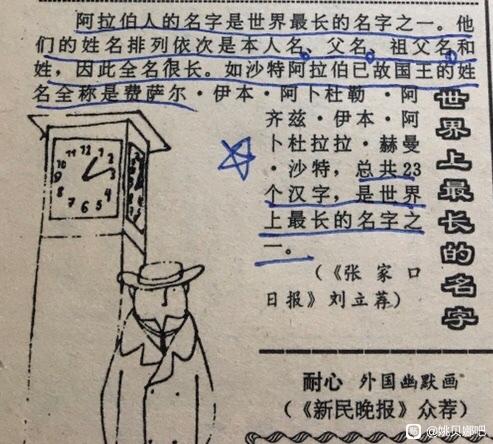 阿拉伯人的名字是世界最长的名字之一。他
们的姓名排列依次是本人名、父名、祖父名和
姓，因此全名很长。如沙特阿拉伯已故国王的姓
名全称是费萨尔·伊本·阿卜杜勒·阿
齐兹·伊本·阿
卜杜拉拉·赫曼
·沙特，总共23
个汉字，是世界
上最长的名字之
一。
（《张家口
日报》刘立荐）
世界上最长的名字
11 12 1
10 2
9 3
8 4
7 6 5
耐心 外国幽默画
（《新民晚报》众荐）
@姚贝娜吧